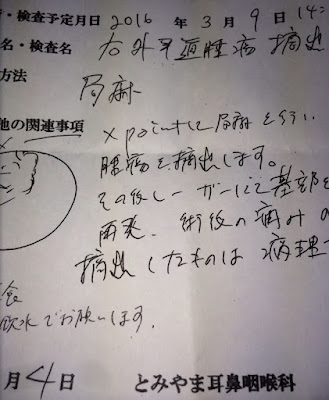 ・検査予定月日 2016 年 3月 9日 14:
名・検査名 右外耳道腫瘍摘出
方法 局麻
他の関連事項 x pointに局麻を行い
腫瘍を摘出します。
その後レーザーにて基部を
術後の痛み
摘出したものは病理
食
飲水でお願いします.
月4日 とみやま耳鼻咽喉科